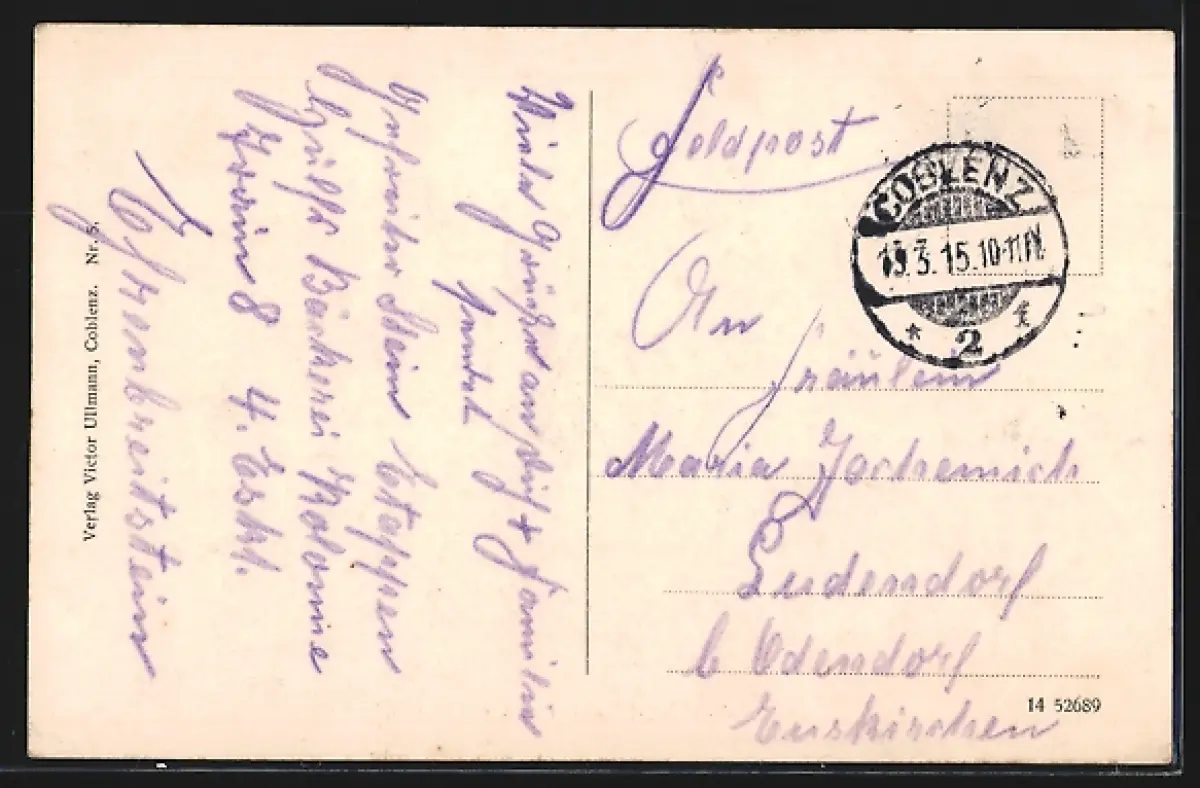 Viele Grüße an dich + Familie
sendet
Gefreiter Klein Etappen
Hülfs Bäckerei Kolonne
Armee 8 4. Eskt.
Ehrenbreitstein
Verlag Victor Ullmann, Coblenz. Nr. 5.
Feldpost
COBLENZ
13.3.15.10-11
* 2
An
Fräulein
Maria Jochemich
Ludendorf
b Odendorf
Euskirchen
14 52689